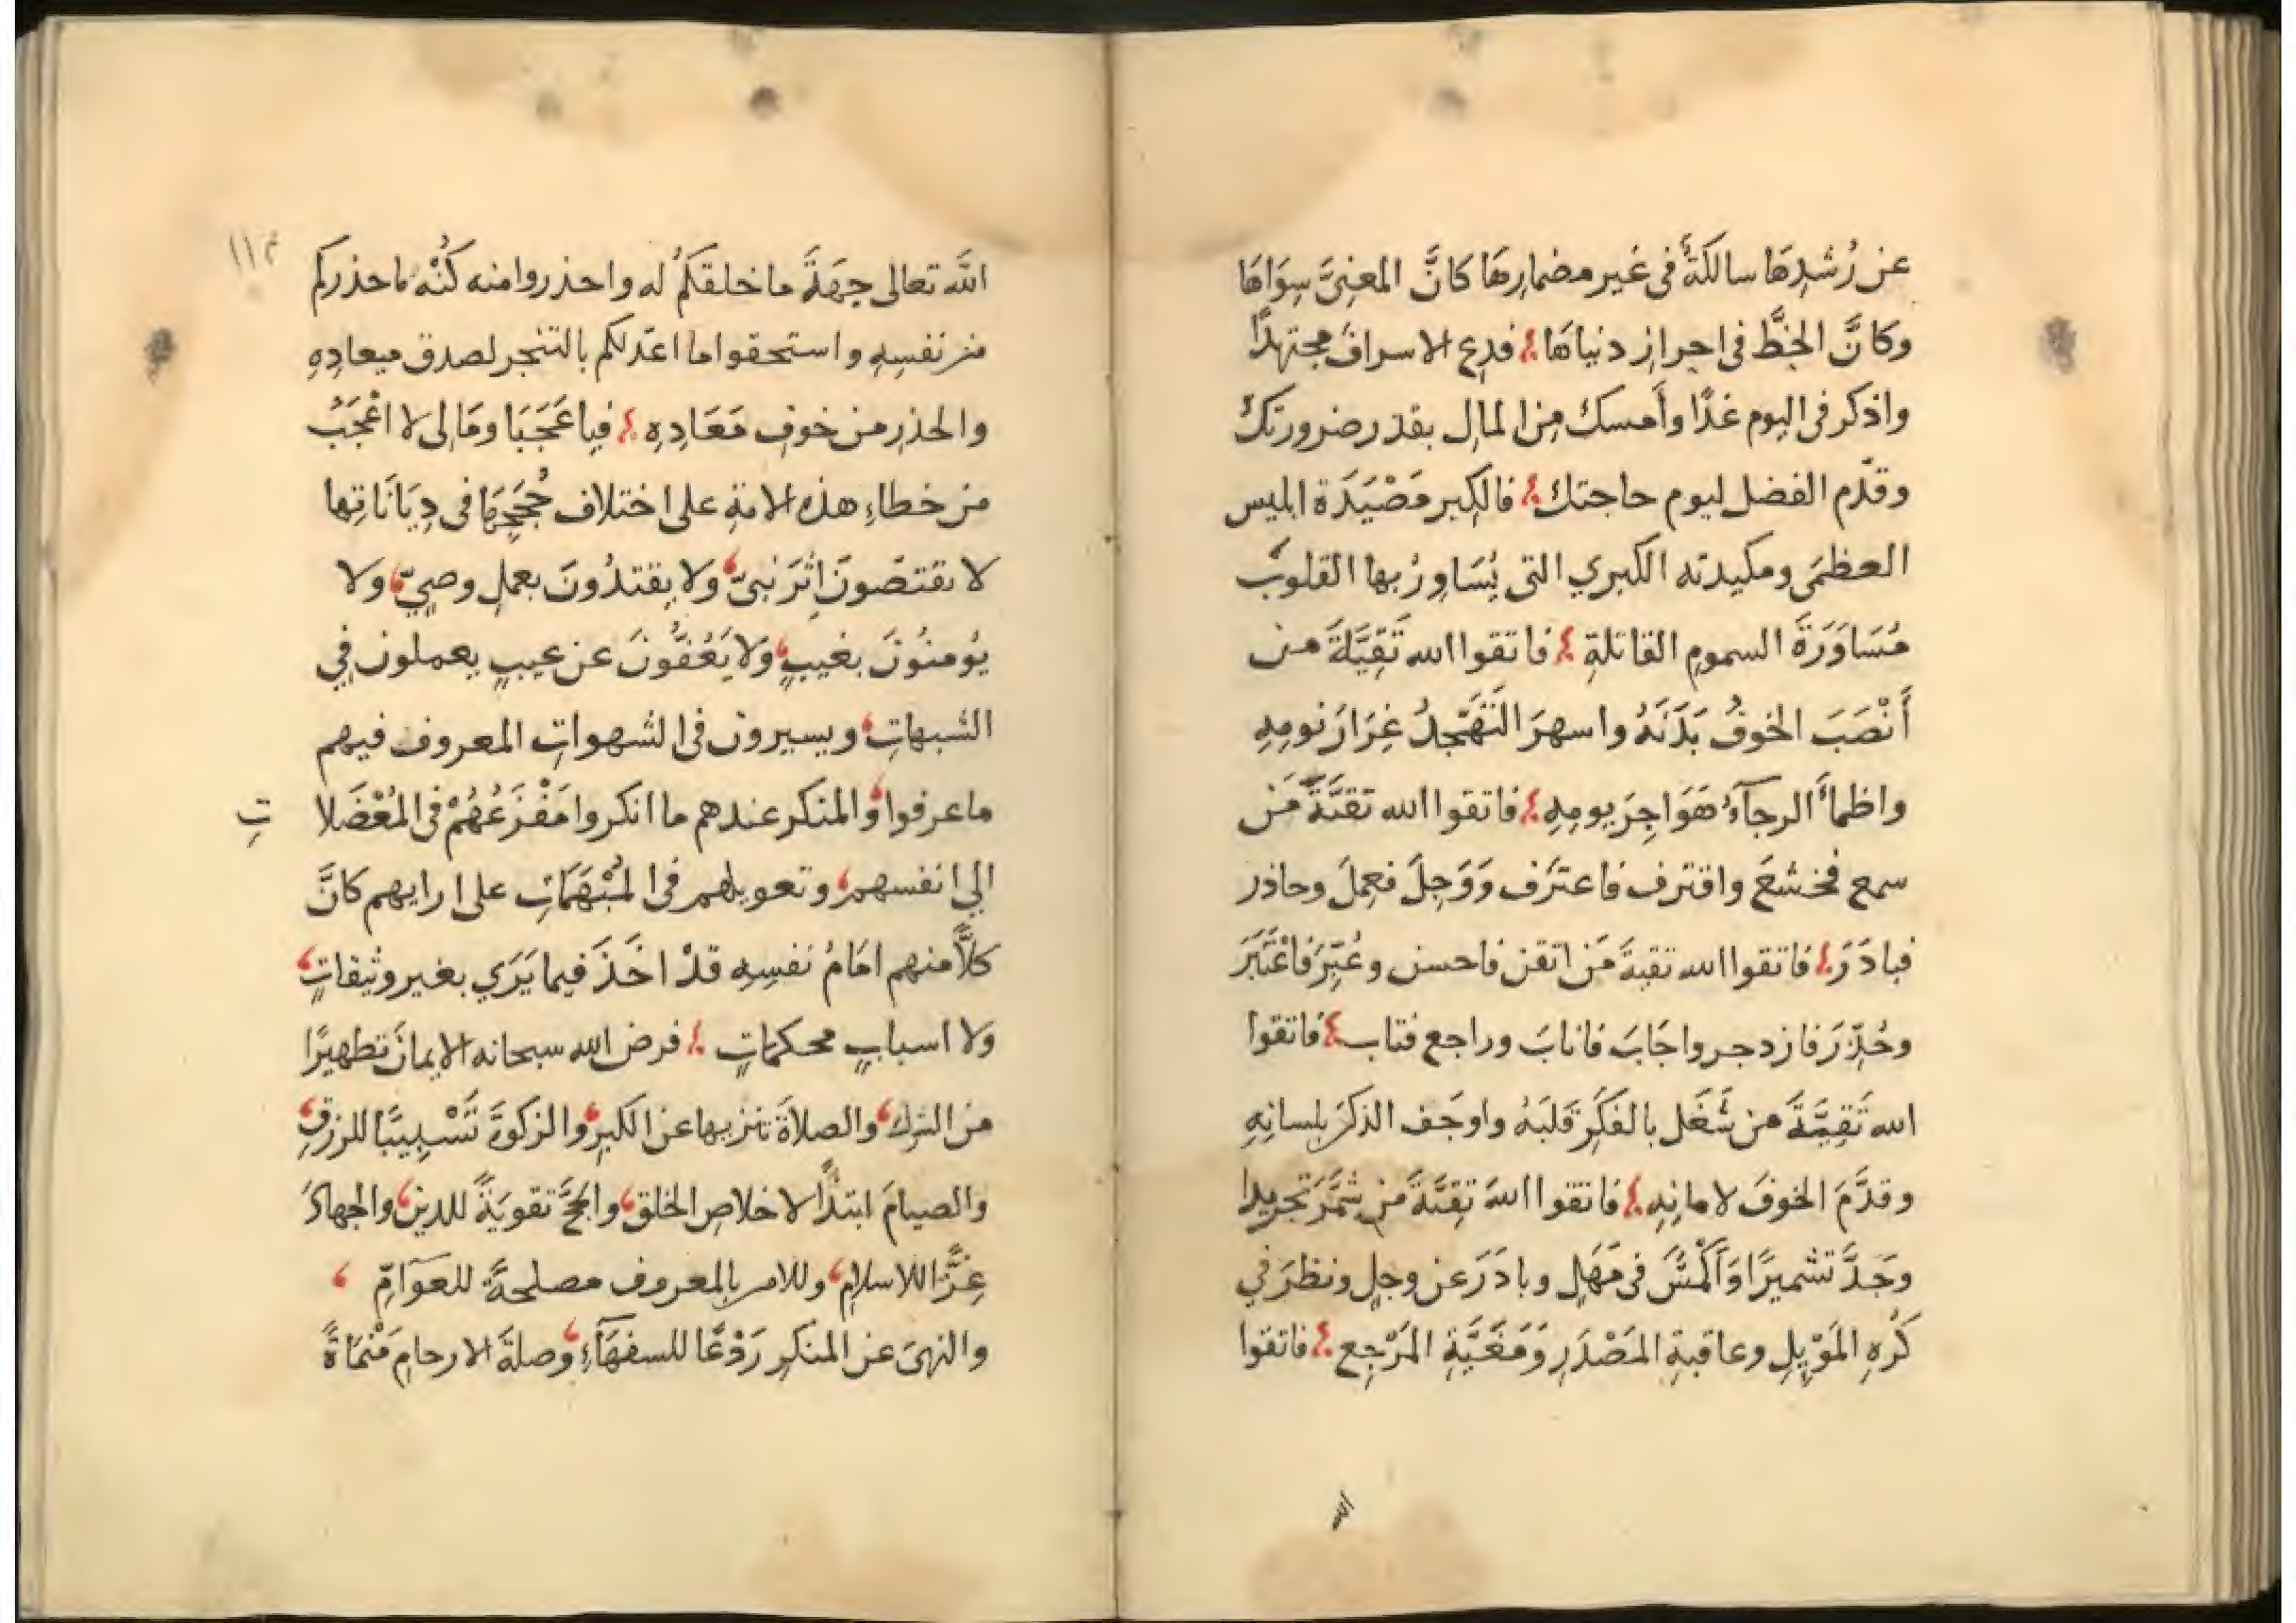 عن رُشدِهَا سالكَةٌ فى غير مضمارِهَا كَانَّ المعنِىَّ سِوَاهَا
وكَانَّ الحظَّ فى احراز دنياهَا فدع الاسرافَ مجتهدًا
واذكر فى اليوم غدًا وأَمسك مِن المالِ بقدر ضرورتك
وقدّم الفضل ليوم حاجتك فالكبر مَصْيَدَة ابليس
العظمَى ومكيدته الكبري التى يُسَاوِرُ بها القلوبَ
مُسَاوَرَةَ السمومِ القاتلةِ فاتقوا الله تَقِيَّةَ من
أَنْصَبَ الخوفُ بَدَنَهُ واسهرَ التَهَجّدُ غِرَارَ نومِهِ
واظمأَ الرجآءُ هَوَاجِرَ يومِهِ فاتقوا الله تقيَّةَ مَن
سمع فخشعَ واقترف فاعترَف وَوَجِلَ فعمِلَ وحاذر
فبادَرَ فاتقوا الله تقيةَ مَن اتقن فاحسن وعُبِّرَ فاعْتَبَرَ
وحُذِّرَ فازدجر واجَابَ فانابَ وراجع فتاب فاتقوا
الله تَقِيَّةَ من شَغَل بالفكَرِ قلبَهُ واوجَف الذكرَ بلسانِهِ
وقدَّمَ الخوفَ لامانِهِ فاتقوا اللهَ تقِيَّةَ من شمَّرَ تجريدا
وجَدَّ تشميرًا وَأَكْمَشَ فى مَهَلٍ وبادَرَ عن وجلٍ ونظرَ في
كَرُهِ المَوْيِلِ وعاقبةِ المَصْدَرِ وَمَغَبَّةِ المَرْجِع فاتقوا
الله
١١٣
اللهَ تعالى جِهَةَ ما خلقكمُ له واحذروا منه كُنْهَ ماحذركم
من نفسِهِ واستحقوا ما اعّد لكم بالتنجر لصدق ميعادِهِ
والحذرِ من خوفِ مَعَادِهِ فيا عَجَبَا وَمَالِى لا اعْجَبُ
من خطاءِ هذه الامةِ على اختلاف حُجَجِهَا فى دِيَانَاتِها
لا يقتصّونَ اِثْرَ نبىّ ولا يقتدُونَ بعملِ وصيّ ولا
يُومنُونَ بغيبٍ وَلا يَعُفُّونَ عن عيبٍ يعملون فِي
الشبهاتِ ويسيرون فى الشهواتِ المعروف فيهم
ماعرفوا والمنكر عندهم ما انكروا مَفْزَعُهُمْ فى المُعْضَلا
تِ
الي انفسهم وتعويلهم فى المُبْهَمَاتِ على ارايهم كانَّ
كلاًّ منهم امَامُ نفسِهِ قدْ اخَذَ فيما يَرَي بغير وثيقاتٍ
ولا اسبابٍ محكماتٍ فرض الله سبحانه الايمانَ تطهيرًا
من الشرك والصلاةَ تنزيها عن الكبرِ والزكوةَ تَسْبِيبًا للرزقِ
والصيامَ ابتلاًءً لاخلاصِ الخلق والحجَّ تقويَةً للدين والجهادَ
عِزًّا للاسلامِ وللامر بالمعروف مصلحةً للعَوَامِّ
والنهىَ عن المنكرِ رَدْعًا للسفهَآءِ وصلةَ الارحامِ مَنْمَاةً